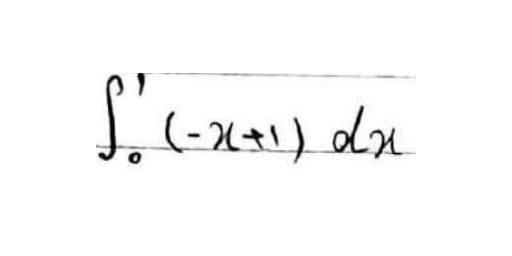 ∫₀¹ (-x+1) dx